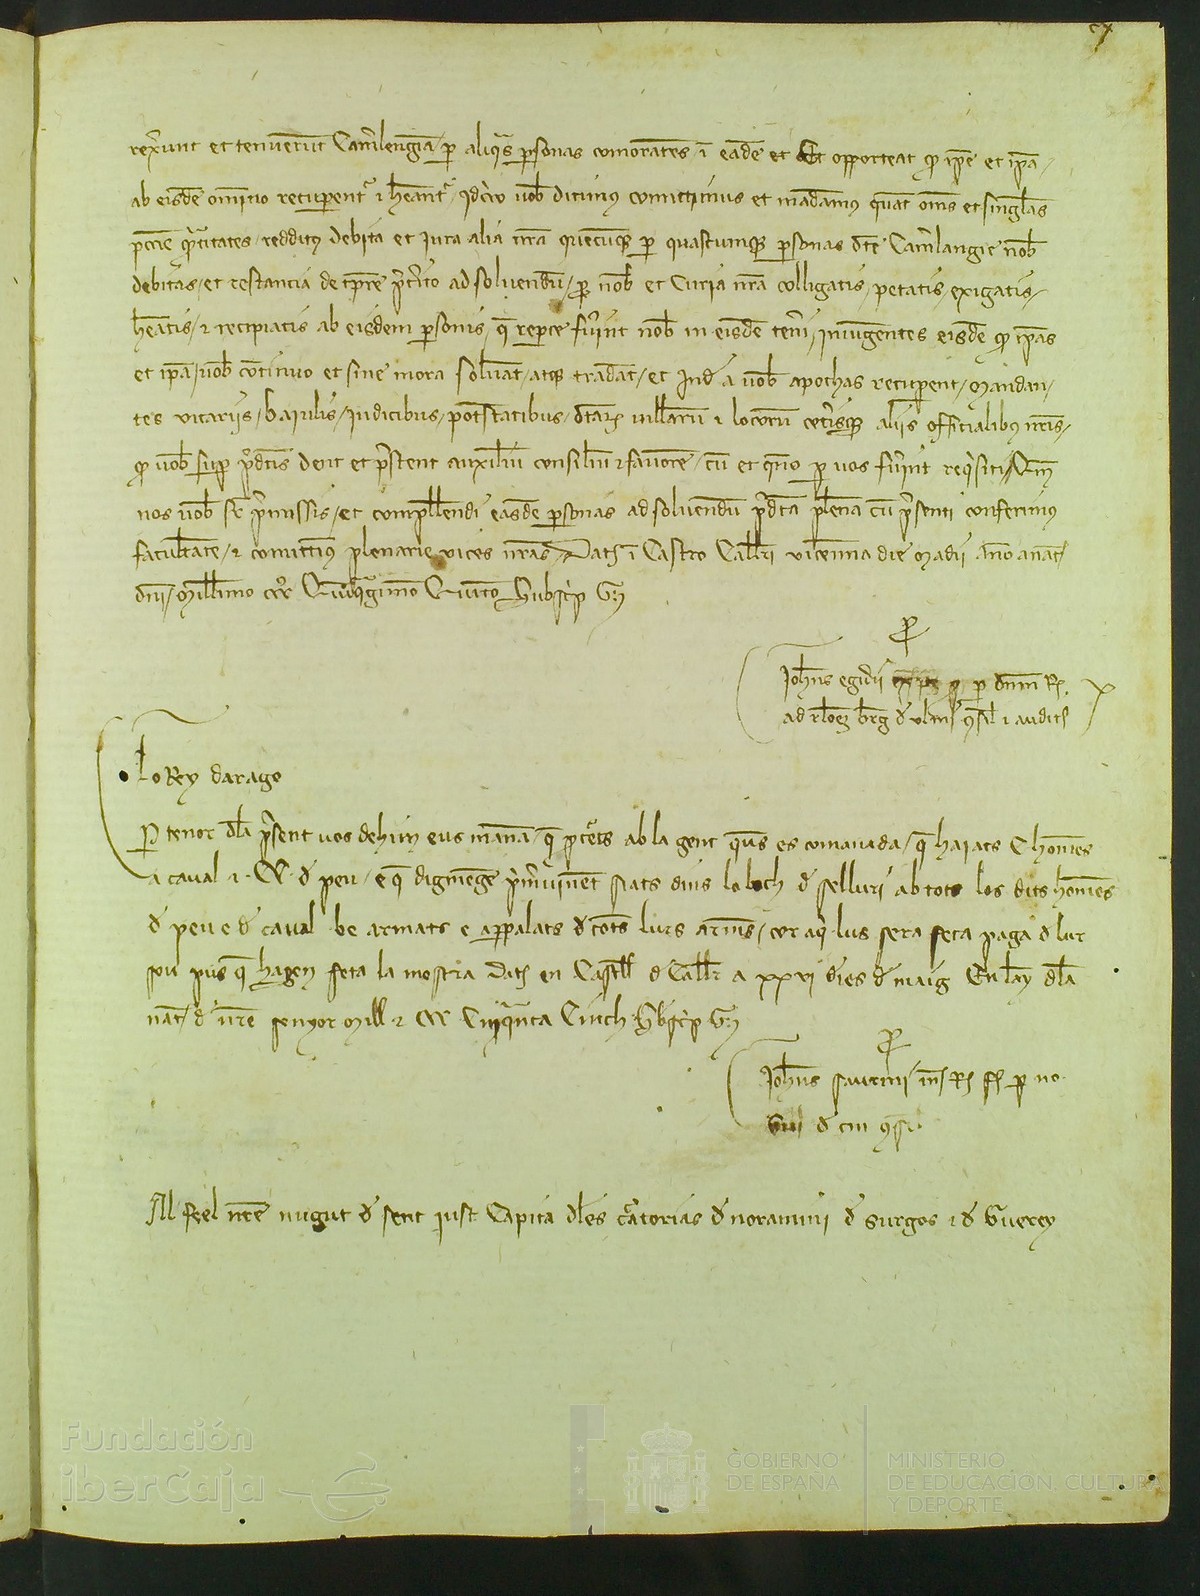 rexerunt et tenuerunt Cam̃lengia / p aliq̃s p̱sonas comorantes ĩ eadẽ et Et opporteat p̱ ip̃e et ip̃a /
ab eisdẽ omino recuperent̃ ⁊ hẽant̃ / idcir̃o uob̃ dicimus comittimus et mãdamus quat̃ om̃s et singl̃as
pecc̃ie q̃titates / redditus debita et iura alia nr̃a quecuq̃ p quascumq̃ p̱sonas dc̃e Cam̃langie nob̃
debitas / et restancia de tp̃re p̃t̃ito ad soluendũ / p̱ nob̃ et Curia nr̃a colligatis / petatis / exigatis /
hẽatis / ⁊ recipiatis ab eisdem p̱sonis / q̃ rep̱te fũint nob̃ in eisdẽ ten̄i / iniungentes eisdẽ q̃ ip̃as
et ip̃a / uob̃ cõtinuo et sine mora soluãt / atq̃ tradãt / et Ind̃ a uob̃ apochas recup̱ent / Mandan /
tes uicariis / baiulis / iudicibus / potestatibus / dc̃ar̃ uillarũ ⁊ locorũ cet̃isq̃ aliis officialibus nr̃is /
q̃ uob̃ sup p̃dc̃is dent et p̃stent auxiliũ consiliũ ⁊ fauorẽ / cũ et qñ p uos fũint req̃siti
nos uob̃ sr̃ p̃missis / et compellendi easdẽ p̱sonas ad soluendũ p̃dc̃a plenã cũ p̃senti conferimus
facultatẽ / ⁊ comittim̃ plenarie uices nr̃as Dat̃ ĩ Castro Call̃ri uicenna die Madii Año a nat̃
dñi / Mill̃imo ccc̃ Quiq̃gimo Quinto Subsc̃p G̃
Joh̃ns egidii p dñm R̃.
ad rl̃oẽ b̃rg d̃ ulm̃ 9sil̃ ⁊ audit̃
Lo Rey darago
P tenor dl̃a p̃sent uos dehim eus manã / q̃ ab la gent q̃us es comanada / q̃ haiats C hom̃es
a caual ⁊ CC d̃ peu / e q̃ digmẽge p̃m̃uinẽt siats dins lo loch d̃ selluri ab tots los dits hom̃es
d̃ peu e d̃ caual be armats e app̱alats d̃ tots lurs arm̃s / cor aq̃ lus sera feta paga d̃ lur
sou pus q̃ hagen feta la mostra Dat̃ en Castell̃ d̃ Call̃r a xxvi dies d̃ maig En lay dl̃a
nat̃ d̃ nr̃e senyor Mill ⁊ CCC Cinq̃nta Cinch Sbsc̃p G̃
Joh̃ns sauerni R̃ p no
d̃ cm 9s
Al feel nr̃e nugut d̃ sent just Capita dl̃es c̃atorias d̃ noramini d̃ Surgos ⁊ d̃ Guerey
Fundación
iberCaja
GOBIERNO
DE ESPAÑA
MINISTERIO
DE EDUCACIÓN, CULTURA
Y DEPORTE